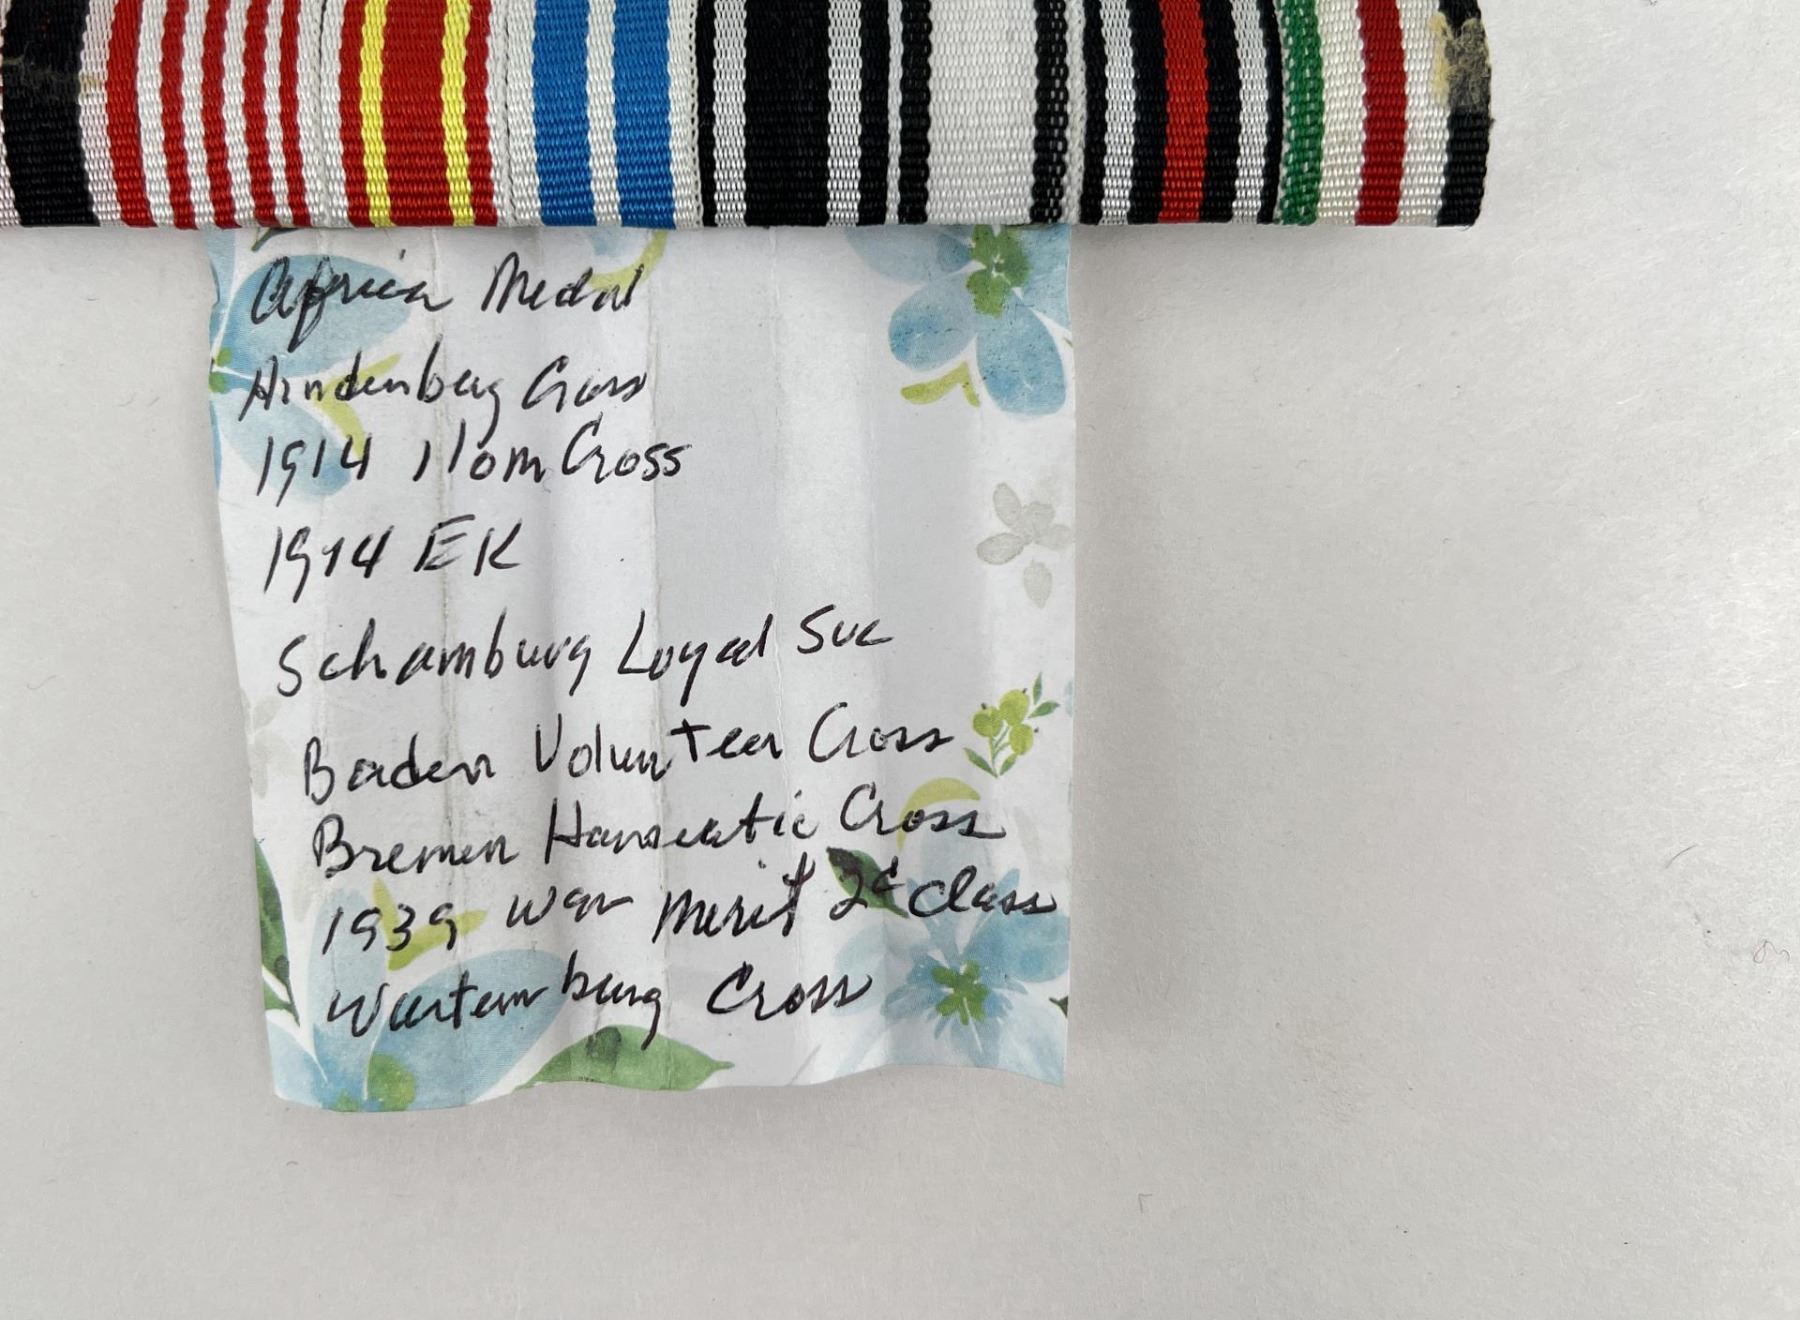 Africa Medal
Hindenburg Cross
1914 Hom Cross
1914 EK
Schamburg Loyal Svc
Baden Volunteer Cross
Bremen Hanseatic Cross
1939 War Merit 2d Class
Wurtemburg Cross